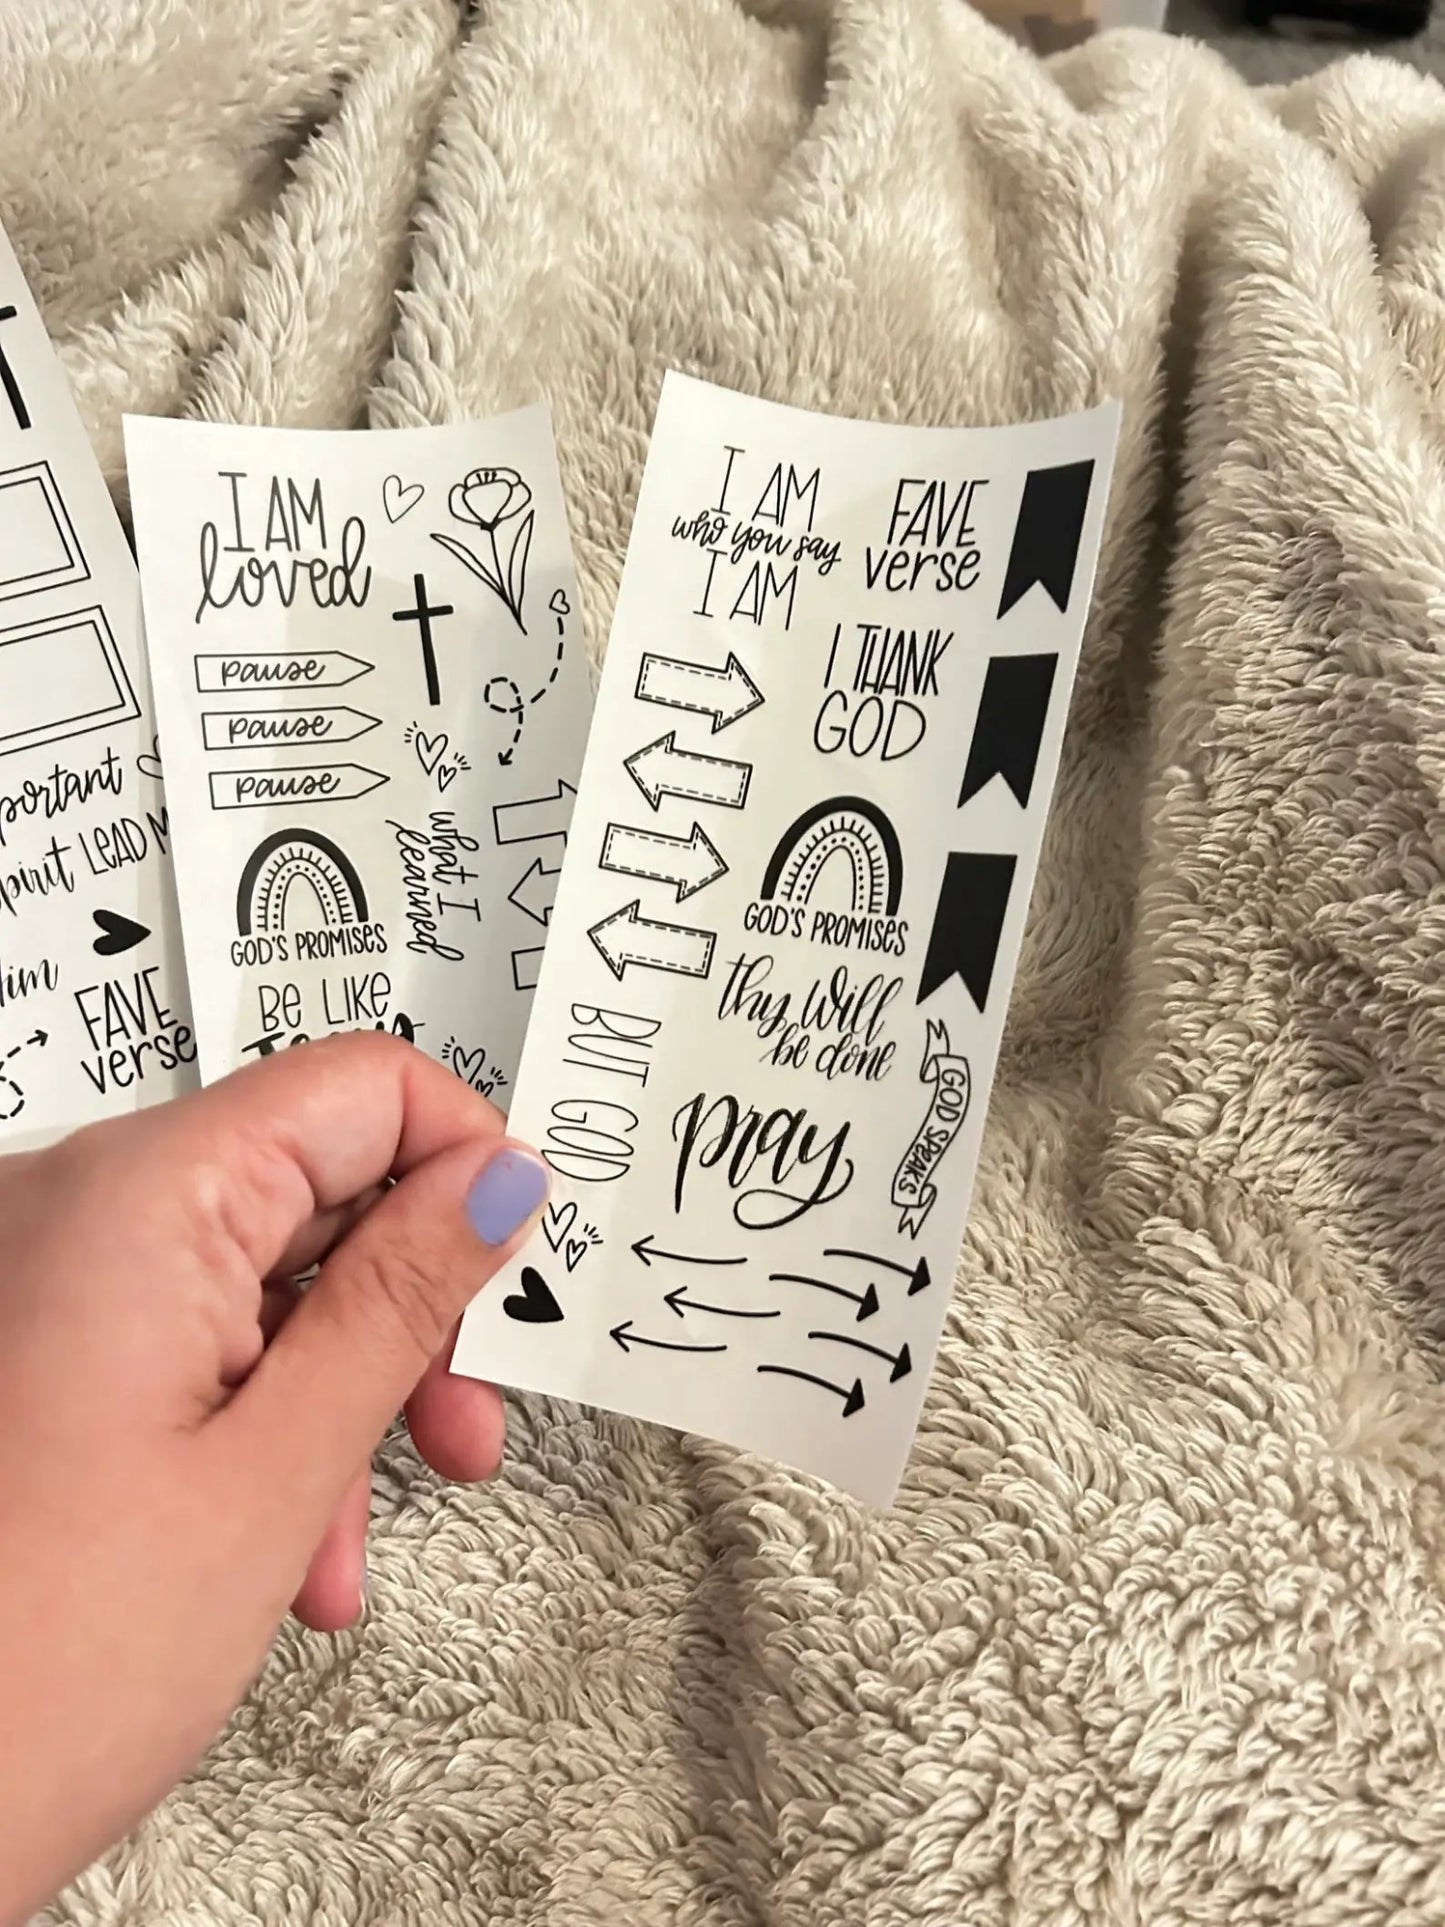 portant
spirit LEAD M
Him
FAVE
verse
I AM
loved
pause
pause
pause
what I
learned
GOD'S PROMISES
BE LIKE
I AM
who you say
I AM
FAVE
verse
I THANK
GOD
GOD'S PROMISES
thy will
be done
BUT GOD
pray
GOD SPEAKS